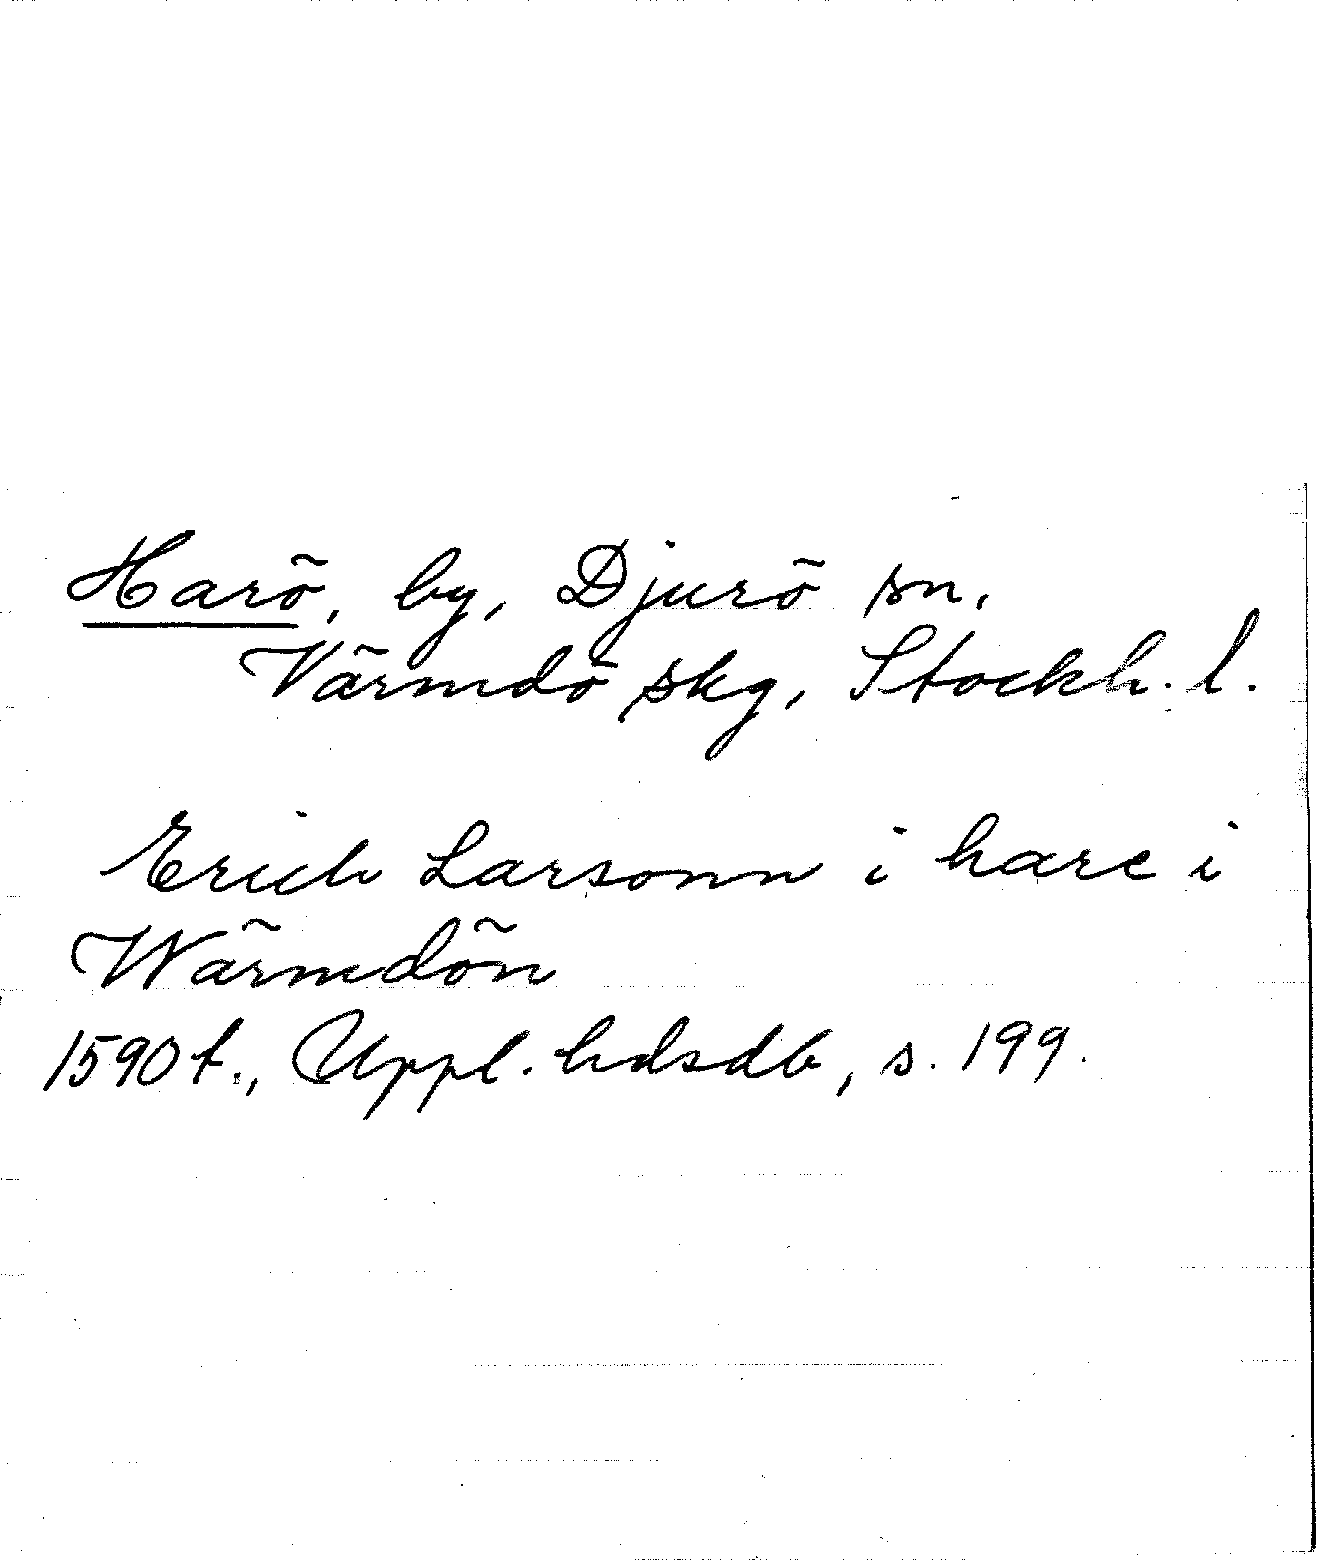 Harö, by, Djurö sn,
Värmdö skg, Stockh. l.
Erich Larsonn i hare i
Wärmdön
1590 t., Uppl. hdsdb, s. 199.